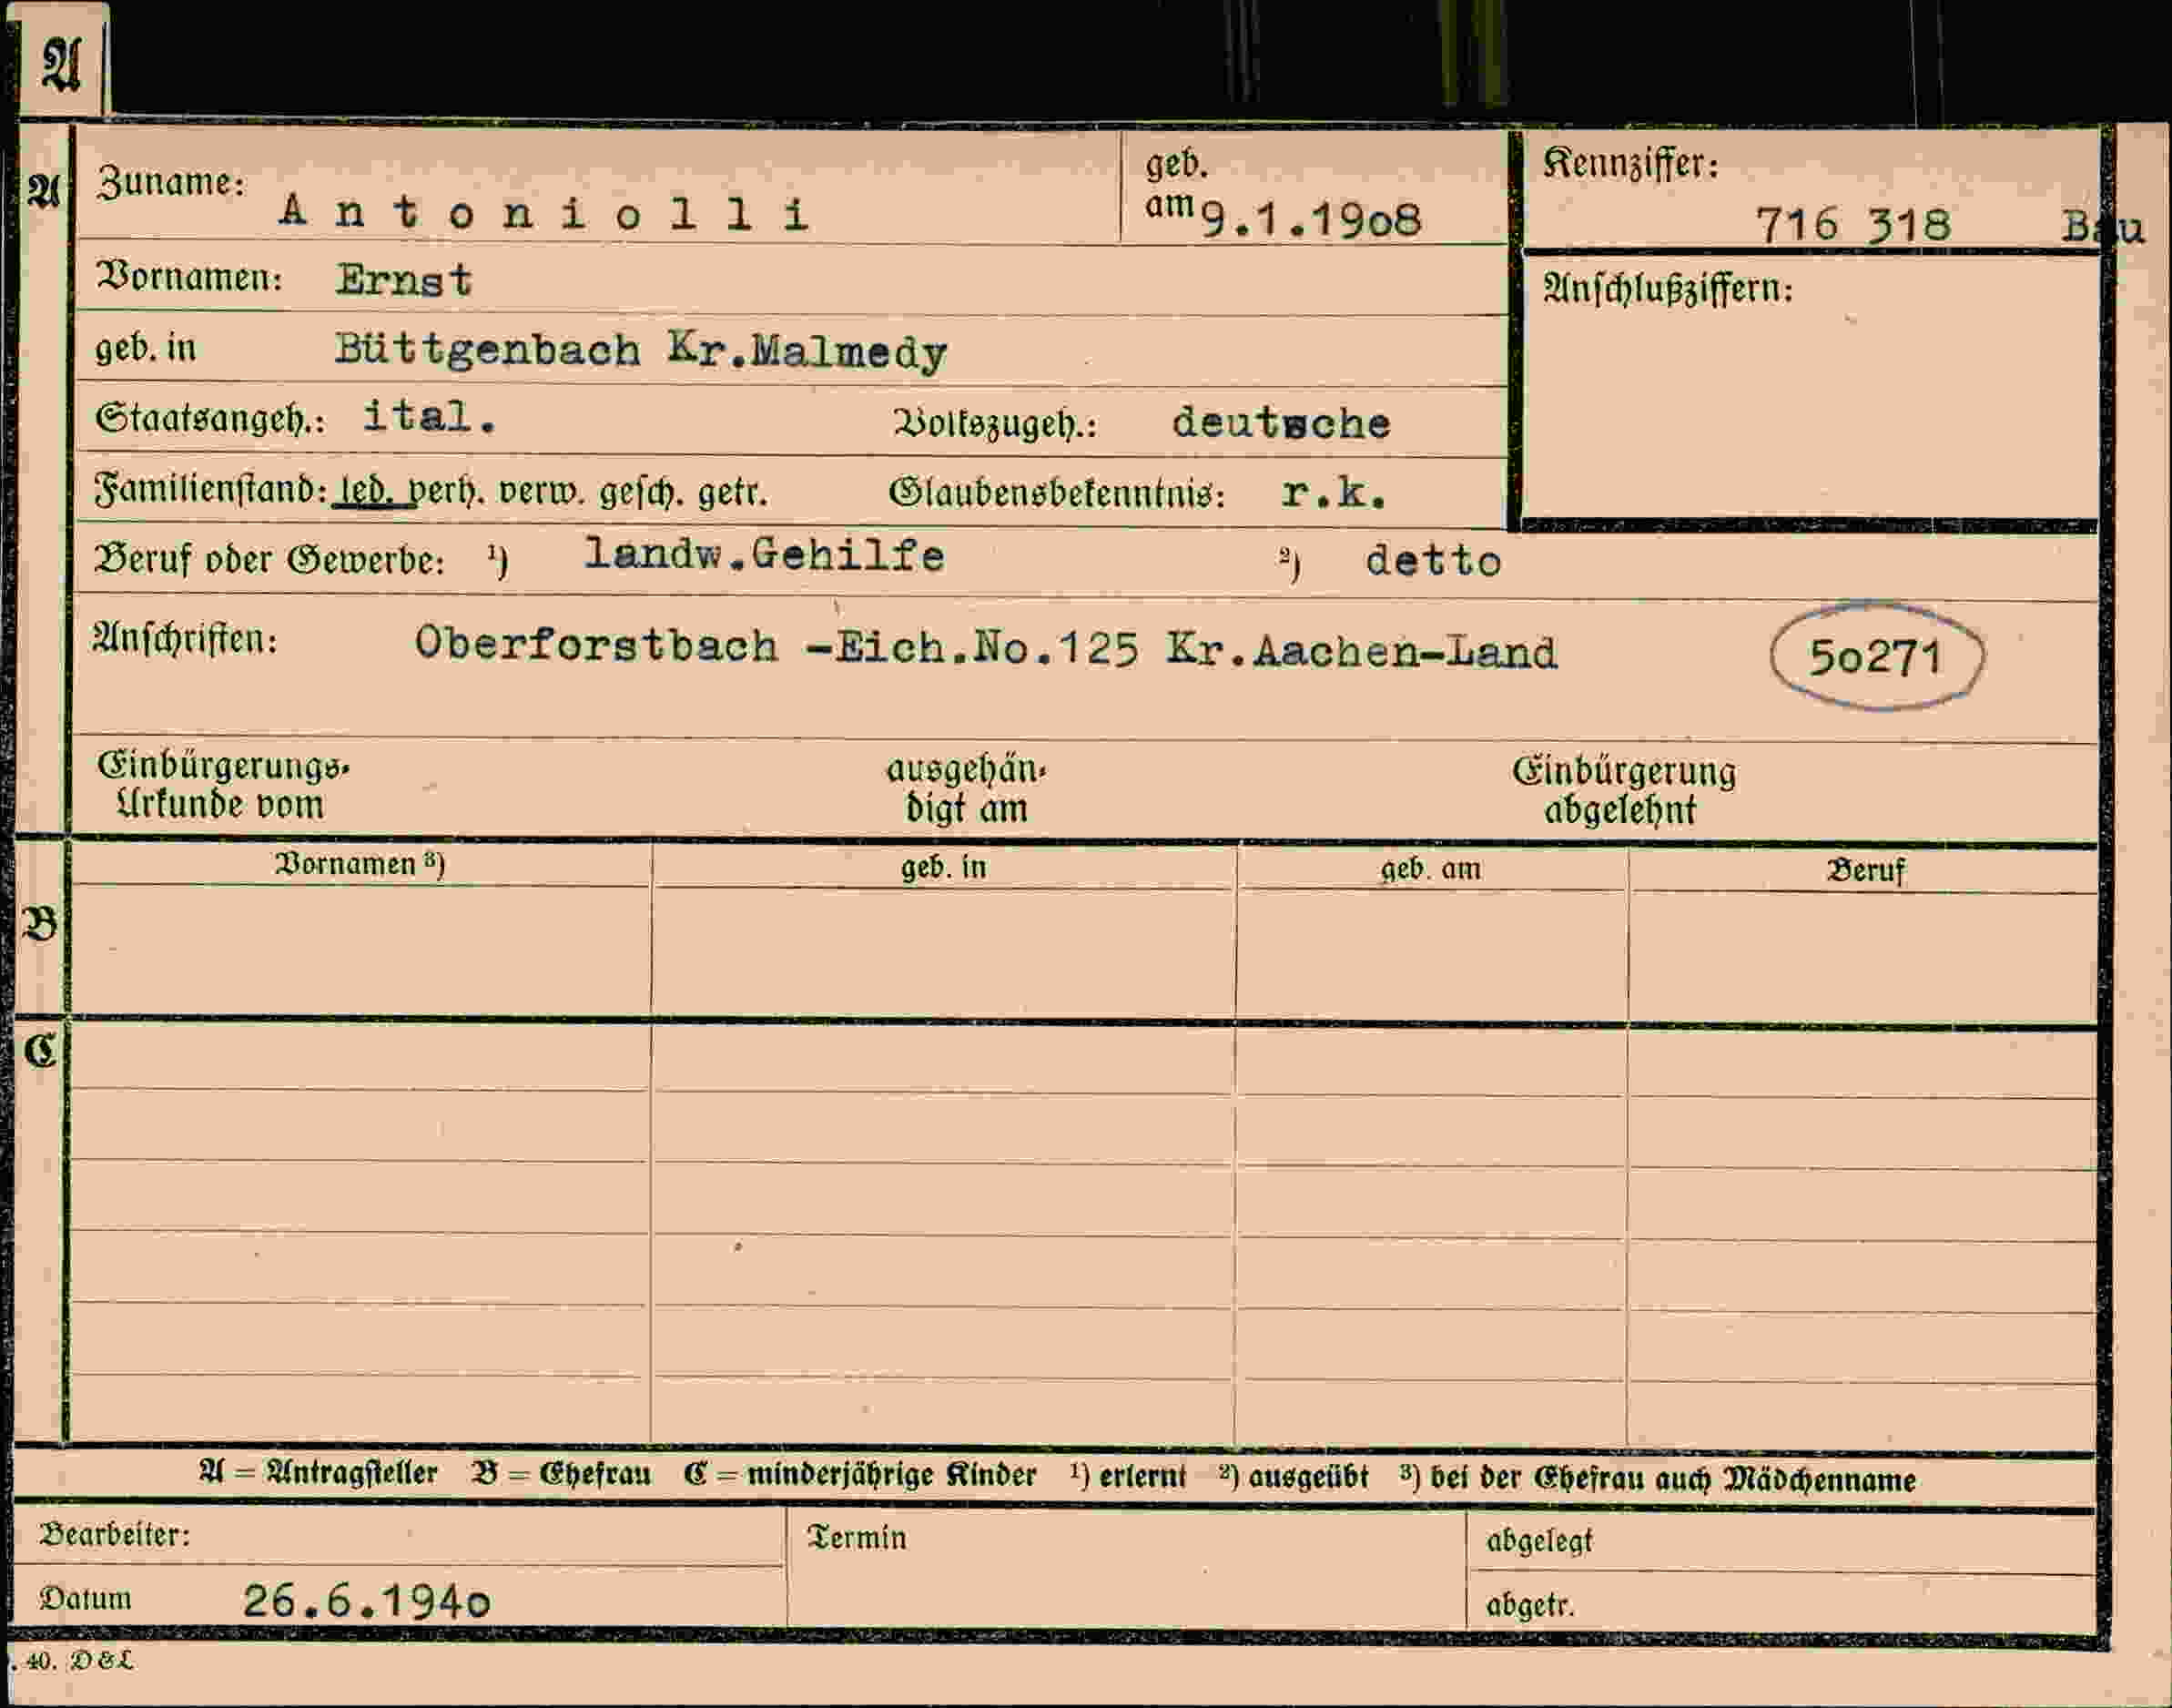 A
A
Zuname: Antoniolli
geb. am 9.1.19o8
Kennziffer: 716 318 Bau
Vornamen: Ernst
Anschlußziffern:
geb. in Büttgenbach Kr.Malmedy
Staatsangeh.: ital. Volkszugeh.: deutsche
Familienstand: led. verh. verw. gesch. getr. Glaubensbekenntnis: r.k.
Beruf oder Gewerbe: ¹) landw.Gehilfe ²) detto
Anschriften: Oberforstbach -Eich.No.125 Kr.Aachen-Land 5o271
Einbürgerungs- ausgehän- Einbürgerung
Urkunde vom digt am abgelehnt
Vornamen ³) geb. in geb. am Beruf
B
C
A = Antragsteller B = Ehefrau C = minderjährige Kinder ¹) erlernt ²) ausgeübt ³) bei der Ehefrau auch Mädchenname
Bearbeiter: Termin abgelegt
Datum 26.6.194o abgetr.
. 40. D & L